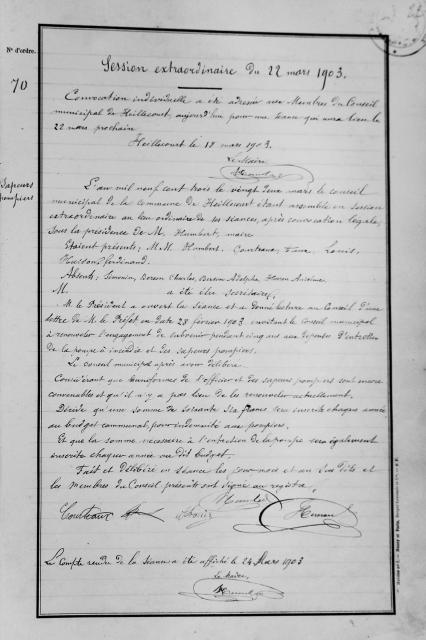 N° d'ordre.
70
Session extraordinaire du 22 mars 1903.
Convocation individuelle a été adressée aux Membres du Conseil
municipal de Heillecourt, aujourd'hui pour une séance qui aura lieu le
22 mars prochain
Heillecourt le 18 mars 1903.
Le Maire
Sapeurs
pompiers
L'an mil neuf cent trois le vingt deux mars le conseil
municipal de la commune de Heillecourt étant assemblé en session
extraordinaire au lieu ordinaire de ses séances, après convocation légale,
sous la présidence de M. Humbert, maire
Etaient présents, M.M. Humbert, Louis,
Ferdinand.
Absents, Simonin, Charles, Adolphe
M. a été élu secrétaire,
M. le Président a ouvert la séance et a donné lecture au Conseil d'une
lettre de M. le Préfet en date 28 février 1903 invitant le conseil municipal
à renouveler l'engagement de subvenir pendant cinq ans aux dépenses d'entretien
de la pompe à incendie et des sapeurs pompiers.
Le conseil municipal après avoir délibéré
Considérant que uniformes de l'officier et des sapeurs pompiers sont encore
convenables et qu'il n'y a pas lieu de les renouveler actuellement.
Décide qu'une somme de soixante six francs sera inscrite chaque année
au budget communal pour indemnité aux pompiers.
Et que la somme nécessaire à l'entretien de la pompe sera également
inscrite chaque année au dit budget.
Fait et délibéré en séance les jour mois et an que dits et
les membres du Conseil présents ont signé au registre,
Courteaux
Le compte rendu de la séance a été affiché le 24 Mars 1903
Le Maire,